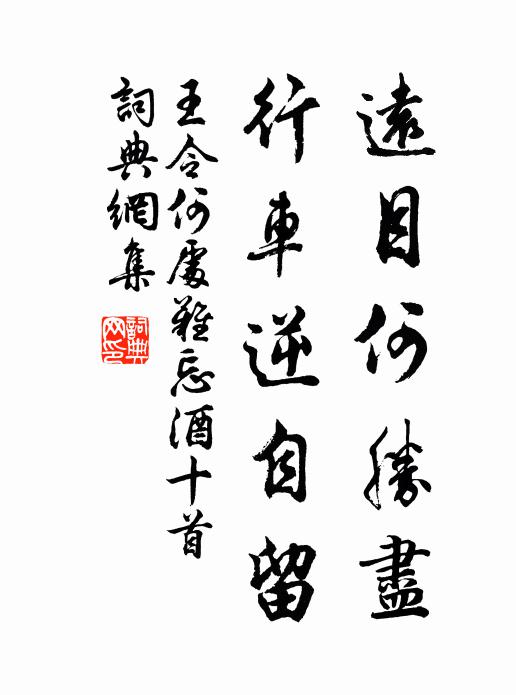 遠目何勝盡
行車逆自留
王令何處難忘酒十首
詞典網集
詞典
网印